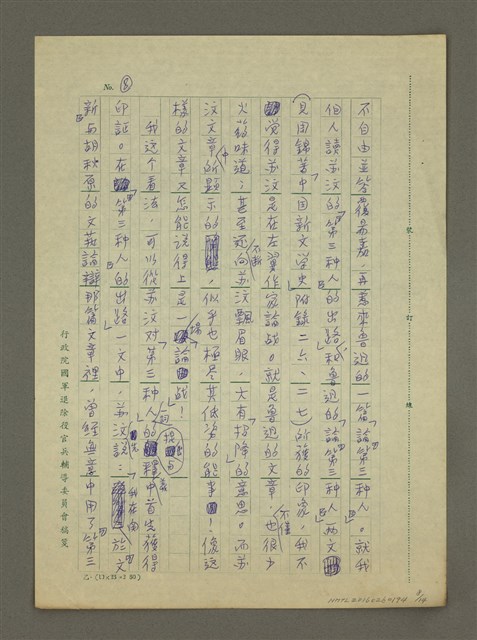 No. ⑧
不自由並答覆易嘉，再來魯迅的一篇論第三種人。就我
個人讀蘇汶的第三種人的出路和魯迅的論第三種人兩文
（見周錦著中國新文學史附錄二六、二七）所獲的印象，我不
覺得蘇汶是在左翼作家論戰。就是魯迅的文章，也很少
火葯味道；甚至還不斷向蘇汶飄眉眼，大有招降的意思。而蘇
汶文章中所顯示的，似乎也極盡其低的能事！像這
樣的文章又怎能說得上是一場論戰！
我這个看法，可以從蘇汶對第三種人的一詞提中首先獲得
印証。在第三種人的出路一文中，蘇汶說：我在向於文
新与胡秋原的文藝論辯那篇文章裡，曾經無意中用了第三
行政院國軍退除役官兵輔導委員會稿箋
裝 訂 線
NMTL20160260194
8/14